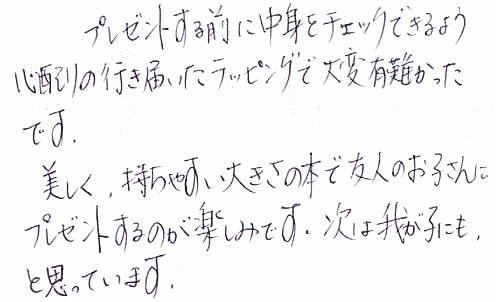 プレゼントする前に中身をチェックできるよう
心配りの行き届いたラッピングで大変有難かった
です.
美しく,持ちやすい大きさの本で友人のお子さんに
プレゼントするのが楽しみです.次は我が子にも,
と思っています.